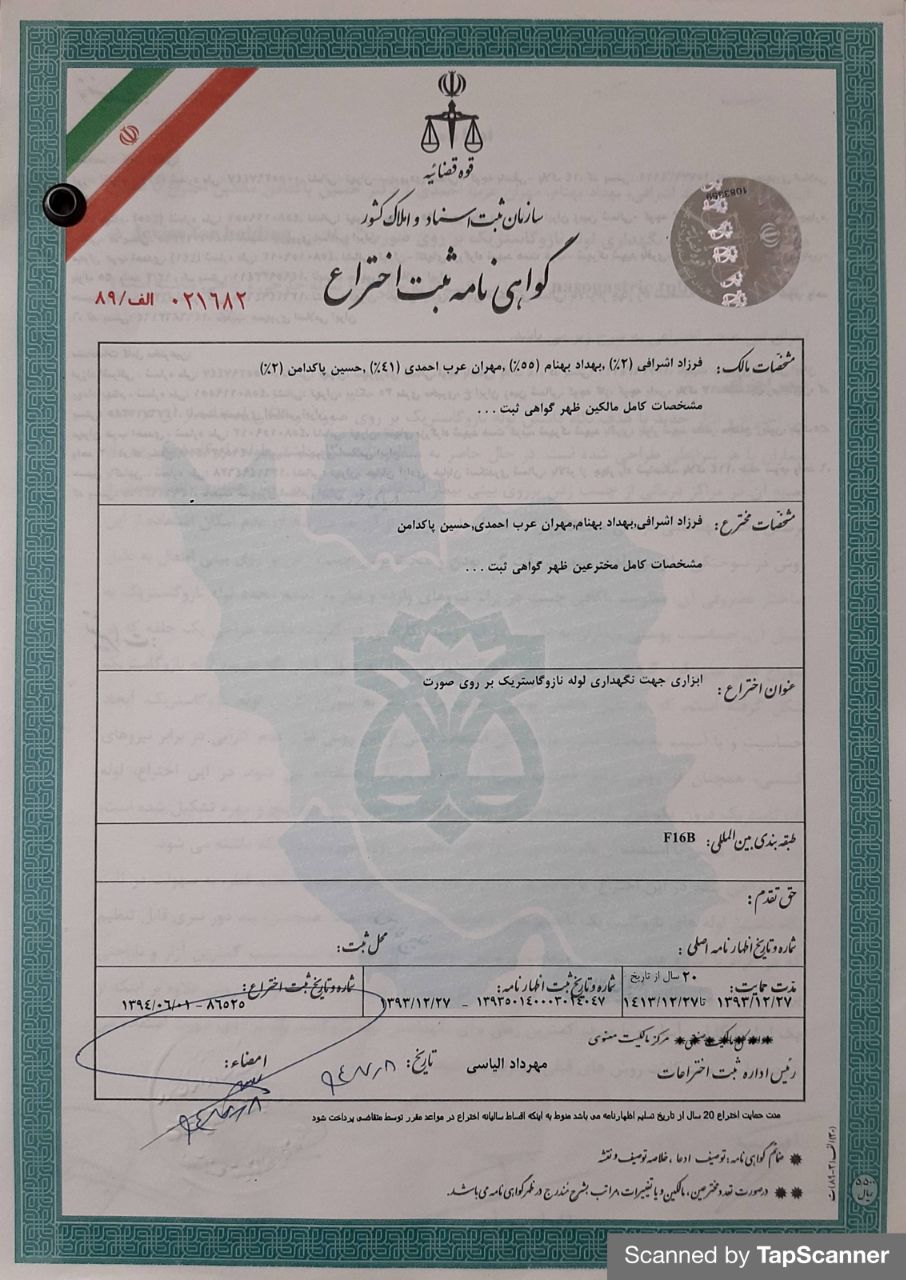 قوه قضائیه
سازمان ثبت اسناد و املاک کشور
گواهی نامه ثبت اختراع
1083354
۰۲۱۶۸۲ الف/۸۹
مشخصات مالک: فرزاد اشرافی (۲٪) ,بهداد بهنام (۵۵٪) ,مهران عرب احمدی (۴۱٪) ,حسین پاکدامن (۲٪)
مشخصات کامل مالکین ظهر گواهی ثبت . . .
مشخصات مخترع: فرزاد اشرافی,بهداد بهنام,مهران عرب احمدی,حسین پاکدامن
مشخصات کامل مخترعین ظهر گواهی ثبت . . .
عنوان اختراع: ابزاری جهت نگهداری لوله نازوگاستریک بر روی صورت
طبقه بندی بین المللی: F16B
حق تقدم:
شماره و تاریخ اظهار نامه اصلی: محل ثبت:
مدت حمایت: ۲۰ سال از تاریخ
۱۳۹۳/۱۲/۲۷ تا ۱۴۱۳/۱۲/۲۷
شماره و تاریخ ثبت اظهار نامه:
۱۳۹۳۵۰۱۴۰۰۰۳۰۱۴۰۴۷ - ۱۳۹۳/۱۲/۲۷
شماره و تاریخ ثبت اختراع:
۸۶۵۲۵ - ۱۳۹۴/۰۶/۰۱
مرکز مالکیت معنوی
رئیس اداره ثبت اختراعات مهرداد الیاسی تاریخ: امضاء:
مدت حمایت اختراع 20 سال از تاریخ تسلیم اظهارنامه می باشد منوط به اینکه اقساط سالیانه اختراع در مواعد مقرر توسط متقاضی پرداخت شود
ضمائم گواهی نامه: توصیف ادعا، خلاصه توصیف و نقشه
درصورت تعدد مخترعین، مالکین و یا تغییرات مراتب بشرح مندرج در ظهر گواهی نامه می باشد.
ریال
Scanned by TapScanner